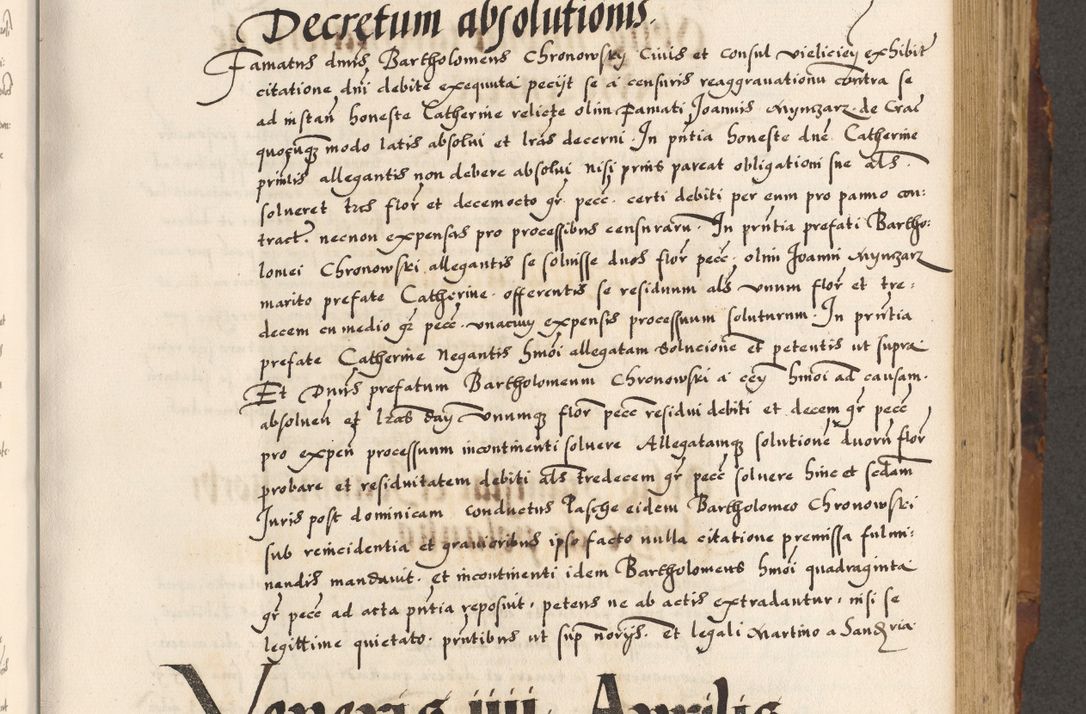 Decretum absolutionis.
Famatus dnus Bartholomeus Chronowsky Ciuis et consul vielicien exhibit
citatione dni debite exequuta pecijt se a censuris reaggravationu contra se
ad instan honeste Catherine relicte olim Famati Joannis Mynczarz de Crac
quocunqz modo latis absolui et lras decerni. In pntia honeste dne Catherine
prntis allegantis non debere absolui nisi prius pareat obligationi sue als
solueret tres flor et decemocto gr. pecc. certi debiti per eum pro panno con:
tract. necnon expensas pro processibus censuraru. In prntia prefati Bartho:
lomei Chronowski allegantis se soluisse duos flor pecc. olim Joanni Mynczarz
marito prefate Catherine. offerentis se residuum als vnum flor et tre:
decem cu medio gr pecc. vnacum expensis processuum soluturum. In prntia
prefate Catherine negantis hmoi allegatam Solucione et petentis ut supra
Et Dnus prefatum Bartholomeum Chronowski a cen hmoi ad causam.
absoluen et lras dan vnumqz flor pecc residui debiti et decem gr pecc
pro expen processuum incontinenti soluere Allegatamqz solutione duoru flor
probare et residuitatem debiti als tredecem gr pecc soluere hinc et scdam
Juris post dominicam conductus Pasche eidem Bartholomeo Chronowski
sub reincidentia et gravioribus ipso facto nulla citatione premissa fulmi:
nandis mandavit. et incontinenti idem Bartholomeus hmoi quadraginta
gr pecc ad acta pntia reposuit. petens ne ab actis extradantur. nisi se
legittime quietato. prntibus ut sup norijs. et legali Martino a Sandria
Veneris iiii Aprilis